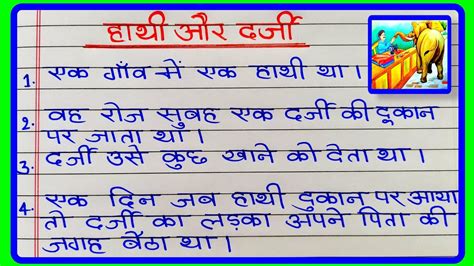 हाथी और दर्जी
1. एक गाँव में एक हाथी था।
2. वह रोज सुबह एक दर्जी की दूकान
पर जाता था।
3. दर्जी उसे कुछ खाने को देता था।
4. एक दिन जब हाथी दुकान पर आया
तो दर्जी का लड़का अपने पिता की
जगह बैठा था।